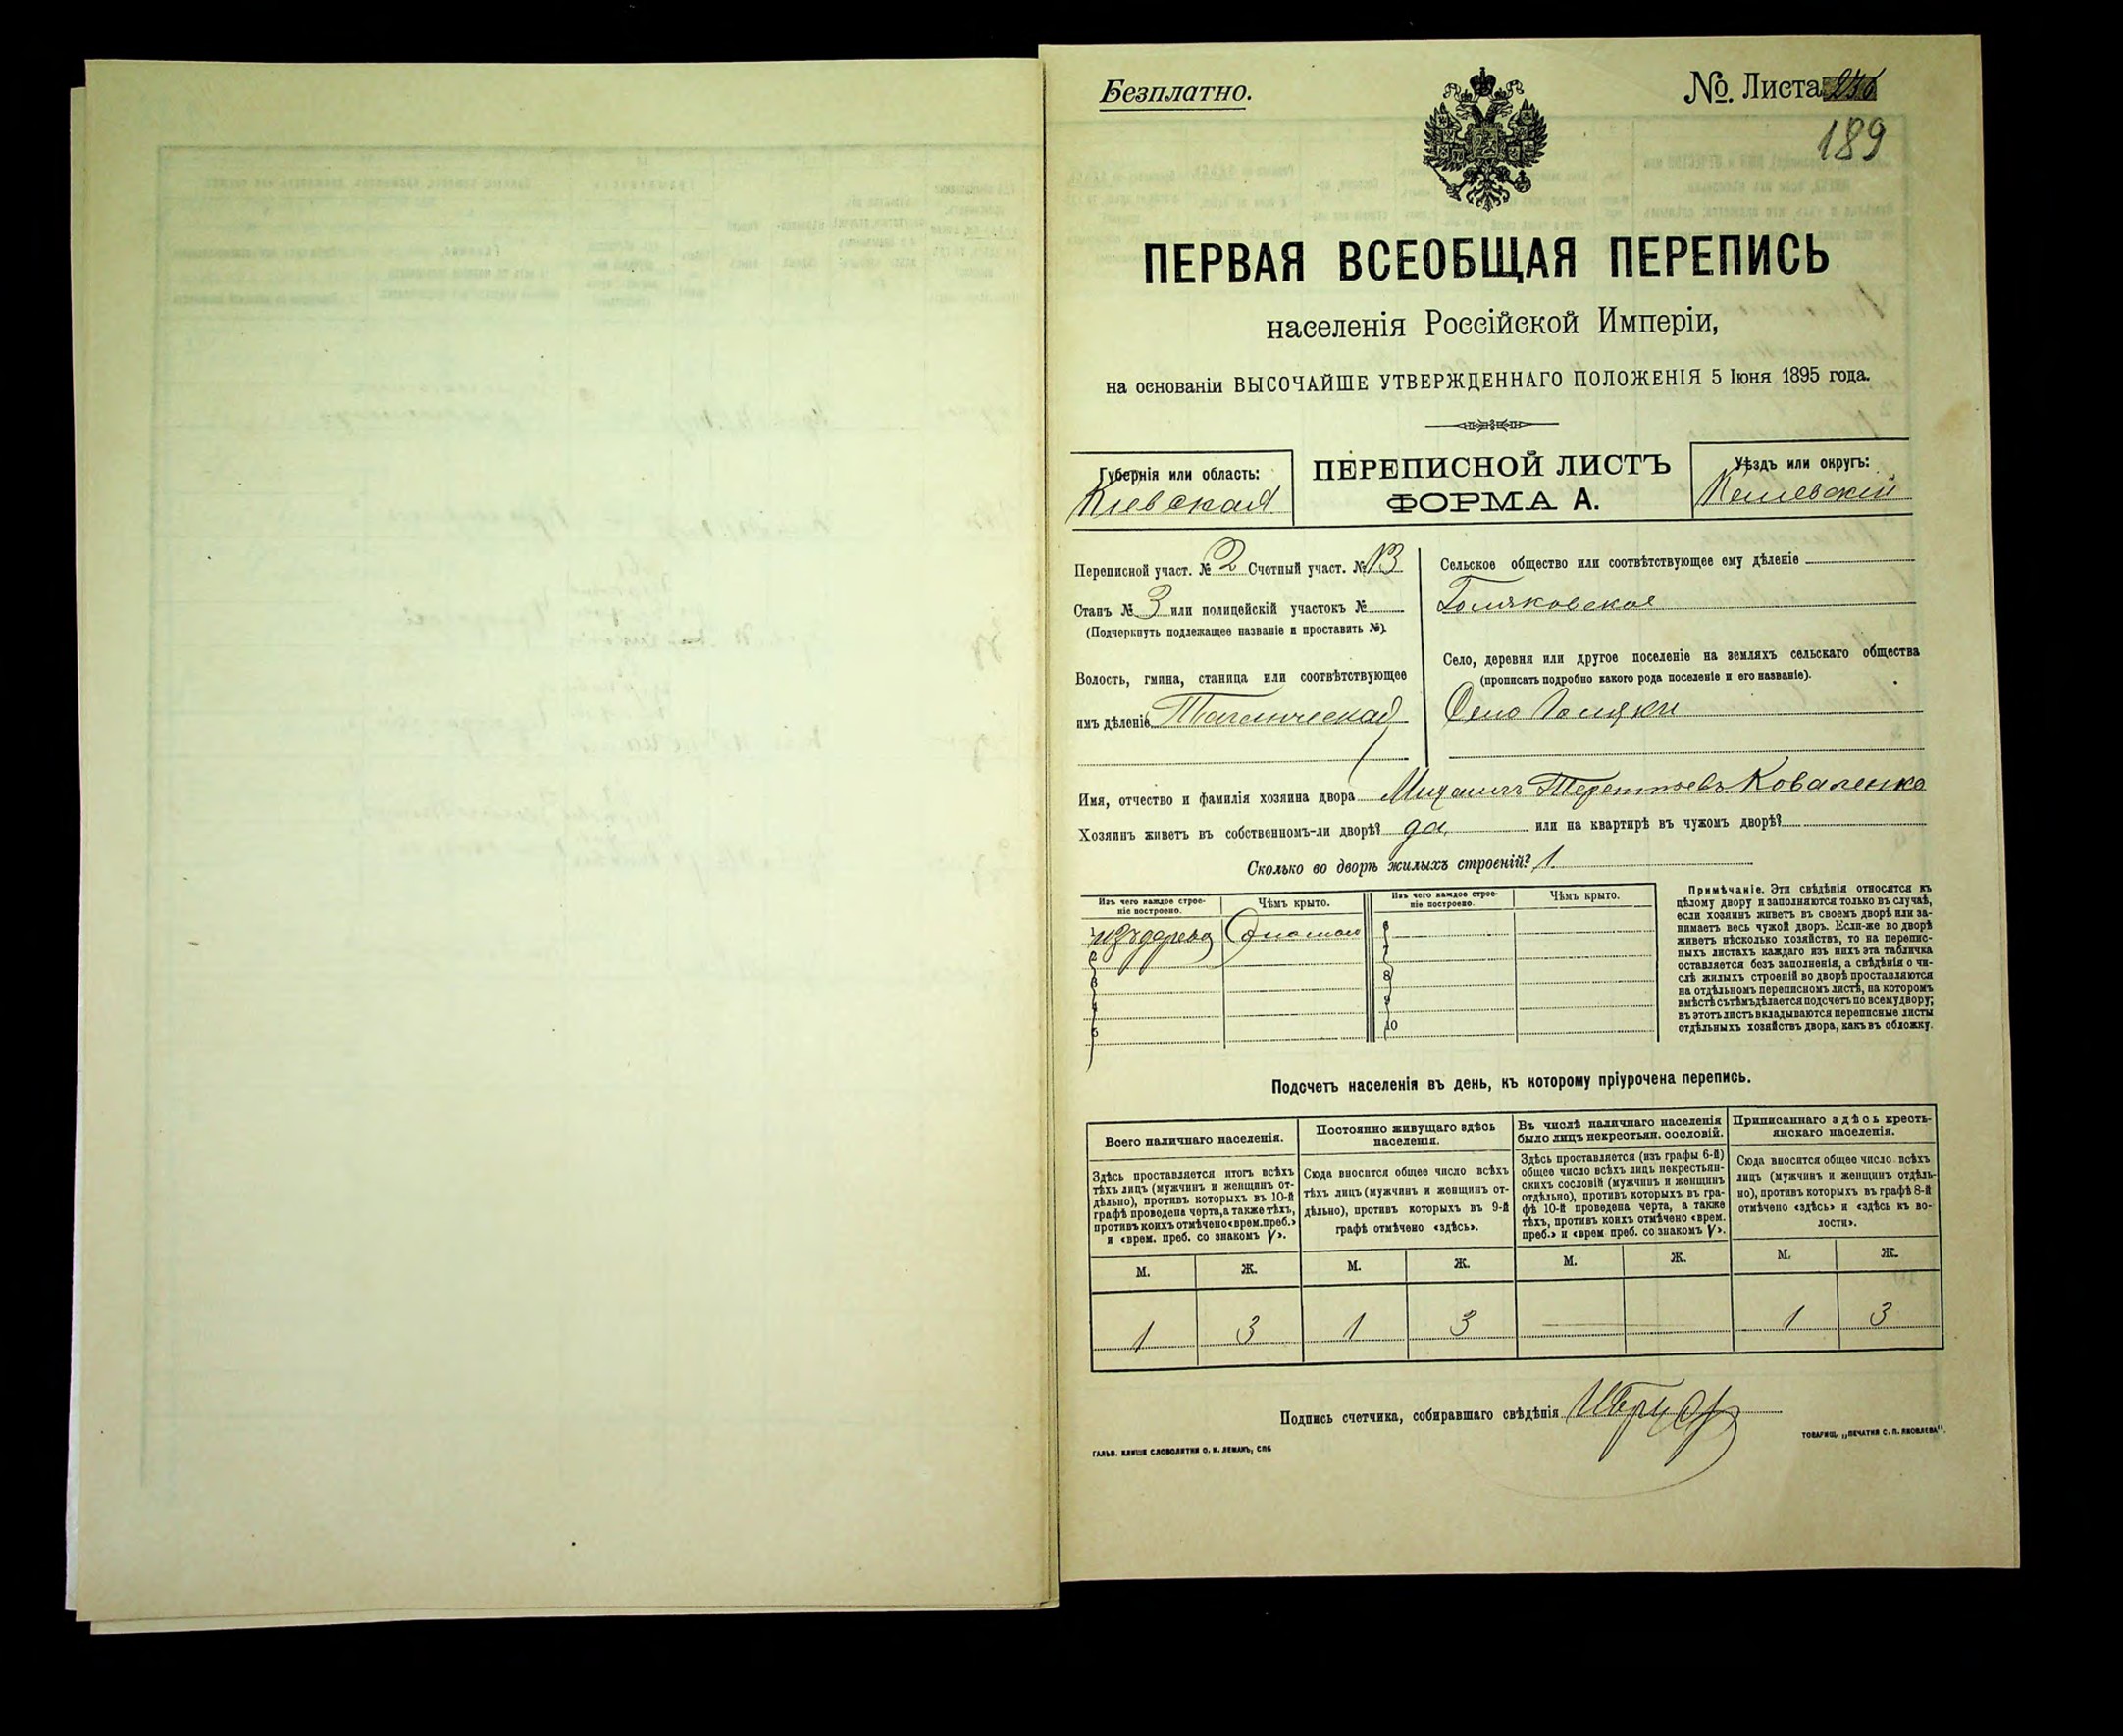 Безплатно.
№. Листа 236
189
ПЕРВАЯ ВСЕОБЩАЯ ПЕРЕПИСЬ
населенія Россійской Имперіи,
на основаніи ВЫСОЧАЙШЕ УТВЕРЖДЕННАГО ПОЛОЖЕНІЯ 5 Іюня 1895 года.
Губернія или область:
Кіевская
ПЕРЕПИСНОЙ ЛИСТЪ
ФОРМА А.
Уѣздъ или округъ:
Переписной участ. № 2 Счетный участ. № 13
Станъ № 3 или полицейскій участокъ №
(Подчеркнуть подлежащее названіе и проставить №).
Волость, гмина, станица или соотвѣтствующее
имъ дѣленіе
Сельское общество или соотвѣтствующее ему дѣленіе
Село, деревня или другое поселеніе на земляхъ сельскаго общества
(прописать подробно какого рода поселеніе и его названіе).
Село
Имя, отчество и фамилія хозяина двора Михаилъ Терентьевъ Коваленко
Хозяинъ живетъ въ собственномъ-ли дворѣ? да или на квартирѣ въ чужомъ дворѣ?
Сколько во дворѣ жилыхъ строеній? 1.
Изъ чего каждое строе-
ніе построено.
Чѣмъ крыто.
Изъ чего каждое строе-
ніе построено.
Чѣмъ крыто.
1 изъ дерева
2
3
4
5
6
7
8
9
10
Примѣчаніе. Эти свѣдѣнія относятся къ
цѣлому двору и заполняются только въ случаѣ,
если хозяинъ живетъ въ своемъ дворѣ или за-
нимаетъ весь чужой дворъ. Если-же во дворѣ
живетъ нѣсколько хозяйствъ, то на перепис-
ныхъ листахъ каждаго изъ нихъ эта табличка
оставляется безъ заполненія, а свѣдѣнія о чи-
слѣ жилыхъ строеній во дворѣ проставляются
на отдѣльномъ переписномъ листѣ, на которомъ
вмѣстѣ съ тѣмъ дѣлается подсчетъ по всему двору;
въ этотъ листъ вкладываются переписные листы
отдѣльныхъ хозяйствъ двора, какъ въ обложку.
Подсчетъ населенія въ день, къ которому пріурочена перепись.
Всего наличнаго населенія.
Здѣсь проставляется итогъ всѣхъ
тѣхъ лицъ (мужчинъ и женщинъ от-
дѣльно), противъ которыхъ въ 10-й
графѣ проведена черта, а также тѣхъ,
противъ коихъ отмѣчено «врем. преб.»
и «врем. преб. со знакомъ V».
Постоянно живущаго здѣсь
населенія.
Сюда вносится общее число всѣхъ
тѣхъ лицъ (мужчинъ и женщинъ от-
дѣльно), противъ которыхъ въ 9-й
графѣ отмѣчено «здѣсь».
Въ числѣ наличнаго населенія
было лицъ некрестьян. сословій.
Здѣсь проставляется (изъ графы 6-й)
общее число всѣхъ лицъ некрестьян-
скихъ сословій (мужчинъ и женщинъ
отдѣльно), противъ которыхъ въ гра-
фѣ 10-й проведена черта, а также
тѣхъ, противъ коихъ отмѣчено «врем.
преб.» и «врем преб. со знакомъ V».
Приписаннаго здѣсь кресть-
янскаго населенія.
Сюда вносится общее число всѣхъ
лицъ (мужчинъ и женщинъ отдѣль-
но), противъ которыхъ въ графѣ 8-й
отмѣчено «здѣсь» и «здѣсь къ во-
лости».
М. Ж. М. Ж. М. Ж. М. Ж.
1 3 1 3 1 3
Подпись счетчика, собиравшаго свѣдѣнія
ГАЛЬВ. КЛИШЕ СЛОВОЛИТНИ О. И. ЛЕМАНЪ, СПБ
ТОВАРИЩ. „ПЕЧАТНЯ С. П. ЯКОВЛЕВА".